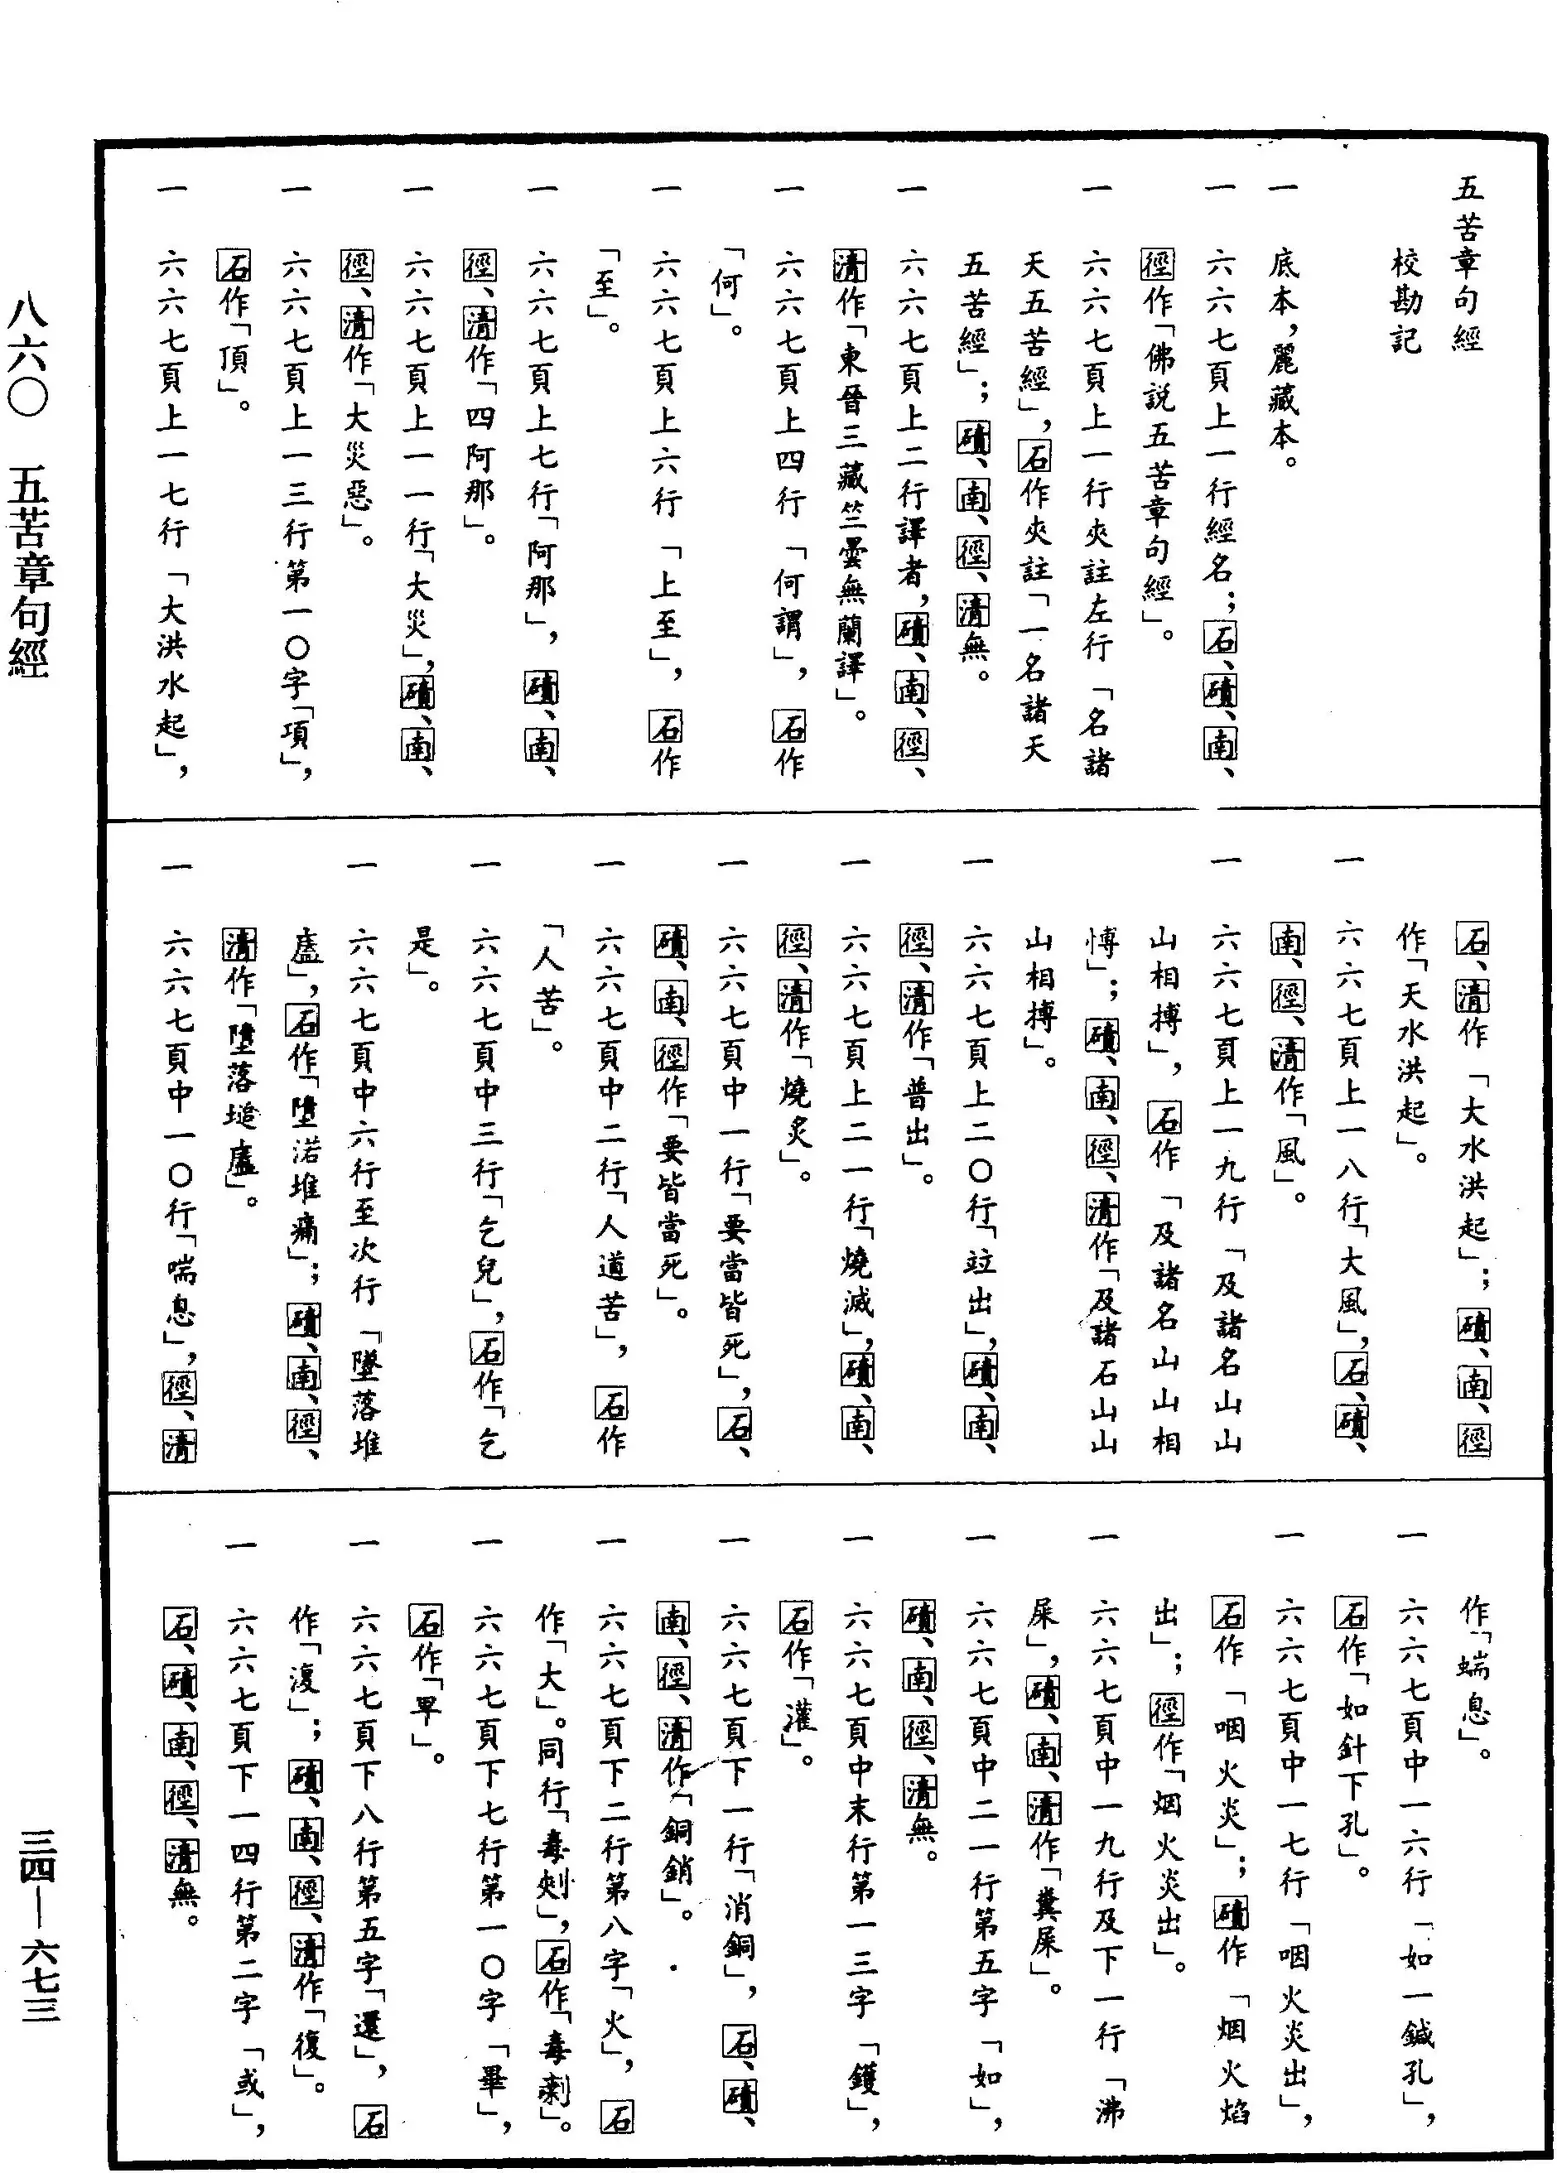 五苦章句經
校勘記
一 底本，麗藏本。
一 六六七頁上一行經名；石、磧、南、
徑作「佛説五苦章句經」。
一 六六七頁上一行夾註左行「名諸
天五苦經」，石作夾註「一名諸天
五苦經」；磧、南、徑、清無。
一 六六七頁上二行譯者，磧、南、徑、
清作「東晉三藏竺曇無蘭譯」。
一 六六七頁上四行「何謂」，石作
「何」。
一 六六七頁上六行「上至」，石作
「至」。
一 六六七頁上七行「阿那」，磧、南、
徑、清作「四阿那」。
一 六六七頁上一一行「大災」，磧、南、
徑、清作「大災惡」。
一 六六七頁上一三行第一〇字「項」，
石作「頂」。
一 六六七頁上一七行「大洪水起」，
石、清作「大水洪起」；磧、南、徑
作「天水洪起」。
一 六六七頁上一八行「大風」，石、磧、
南、徑、清作「風」。
一 六六七頁上一九行「及諸名山山
山相搏」，石作「及諸名山山相
愽」；磧、南、徑、清作「及諸石山山
山相搏」。
一 六六七頁上二〇行「竝出」，磧、南、
徑、清作「普出」。
一 六六七頁上二一行「燒滅」，磧、南、
徑、清作「燒炙」。
一 六六七頁中一行「要當皆死」，石、
磧、南、徑作「要皆當死」。
一 六六七頁中二行「人道苦」，石作
「人苦」。
一 六六七頁中三行「乞兒」，石作「乞
是」。
一 六六七頁中六行至次行「墜落堆
盧」，石作「墮渃堆痛」；磧、南、徑、
清作「墮落塠盧」。
一 六六七頁中一〇行「喘息」，徑、清
作「蝡息」。
一 六六七頁中一六行「如一鍼孔」，
石作「如針下孔」。
一 六六七頁中一七行「咽火炎出」，
石作「咽火炎」；磧作「烟火焰
出」；徑作「烟火炎出」。
一 六六七頁中一九行及下一行「沸
屎」，磧、南、清作「糞屎」。
一 六六七頁中二一行第五字「如」，
磧、南、徑、清無。
一 六六七頁中末行第一三字「鑊」，
石作「灌」。
一 六六七頁下一行「消銅」，石、磧、
南、徑、清作「銅銷」。
一 六六七頁下二行第八字「火」，石
作「大」。同行「毒刺」，石作「毒剌」。
一 六六七頁下七行第一〇字「畢」，
石作「早」。
一 六六七頁下八行第五字「還」，石
作「澓」；磧、南、徑、清作「復」。
一 六六七頁下一四行第二字「或」，
石、磧、南、徑、清無。
八六〇 五苦章句經
三四—六七三